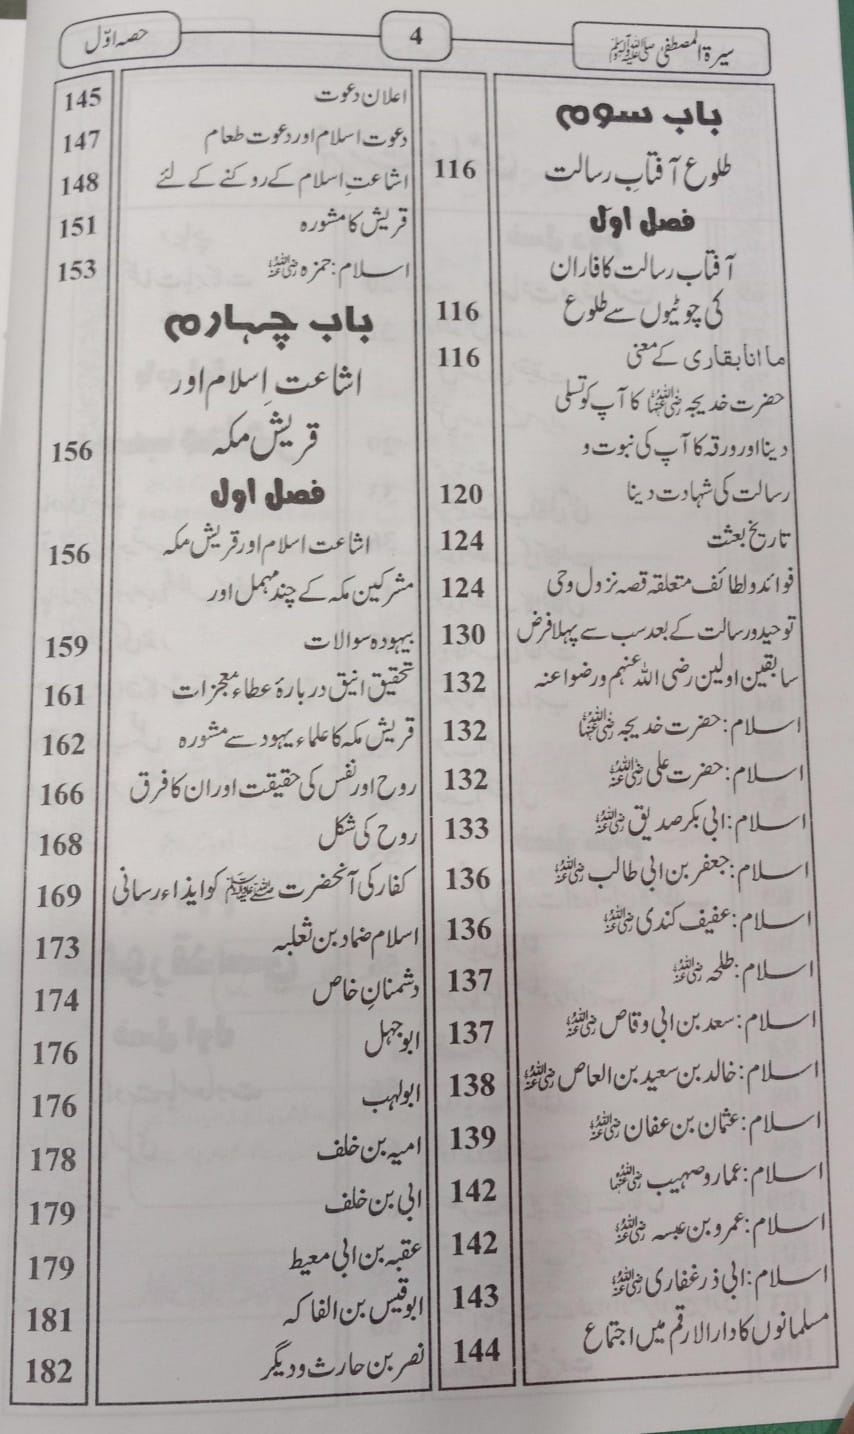 سیرۃ المصطفیٰ ﷺ
4
حصہ اوّل
باب سوم
طلوع آفتابِ رسالت 116
فصل اول
آفتاب رسالت کا فاران
کی چوٹیوں سے طلوع 116
ما انا بقاری کے معنی 116
حضرت خدیجہ رضی اللہ عنہا کا آپ کو تسلی
دینا اور ورقہ کا آپ کی نبوت و
رسالت کی شہادت دینا 120
تاریخ بعثت 124
فوائد و لطائف متعلقہ قصہ نزول وحی 124
توحید و رسالت کے بعد سب سے پہلا فرض 130
سابقین اولین رضی اللہ عنہم ورضوا عنہ 132
اسلام: حضرت خدیجہ رضی اللہ عنہا 132
اسلام: حضرت علی رضی اللہ عنہ 132
اسلام: ابی بکر صدیق رضی اللہ عنہ 133
اسلام: جعفر بن ابی طالب رضی اللہ عنہ 136
اسلام: عفیف کندی رضی اللہ عنہ 136
اسلام: طلحہ رضی اللہ عنہ 137
اسلام: سعد بن ابی وقاص رضی اللہ عنہ 137
اسلام: خالد بن سعید بن العاص رضی اللہ عنہ 138
اسلام: عثمان بن عفان رضی اللہ عنہ 139
اسلام: عمار و صہیب رضی اللہ عنہما 142
اسلام: عمرو بن عبسہ رضی اللہ عنہ 142
اسلام: ابی ذر غفاری رضی اللہ عنہ 143
مسلمانوں کا دار الارقم میں اجتماع 144
اعلان دعوت 145
دعوت اسلام اور دعوت طعام 147
اشاعتِ اسلام کے روکنے کے لئے 148
قریش کا مشورہ 151
اسلام: حمزہ رضی اللہ عنہ 153
باب چہارم
اشاعت اِسلام اور
قریش مکہ 156
فصل اول
اشاعت اسلام اور قریش مکہ 156
مشرکین مکہ کے چند مہمل اور
بیہودہ سوالات 159
تحقیق انیق دربارۂ عطاء معجزات 161
قریش مکہ کا علماء یہود سے مشورہ 162
روح اور نفس کی حقیقت اور ان کا فرق 166
روح کی شکل 168
کفار کی آنحضرت ﷺ کو ایذاء رسانی 169
اسلام ضماد بن ثعلبہ 173
دشمنانِ خاص 174
ابو جہل 176
ابولہب 176
امیہ بن خلف 178
ابی بن خلف 179
عقبہ بن ابی معیط 179
ابو قیس بن الفاکہ 181
نصر بن حارث و دیگر 182